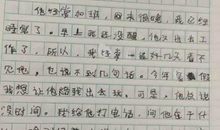 他经常加班，回来很晚，我已经
睡了。早上我还没醒，他又出去工
作了，所以，我经常一连好几天看不
见他，也说不到几句话。今年
我想让他陪我出去玩，可是，他总说
没时间。我给他打电话，问他在干什